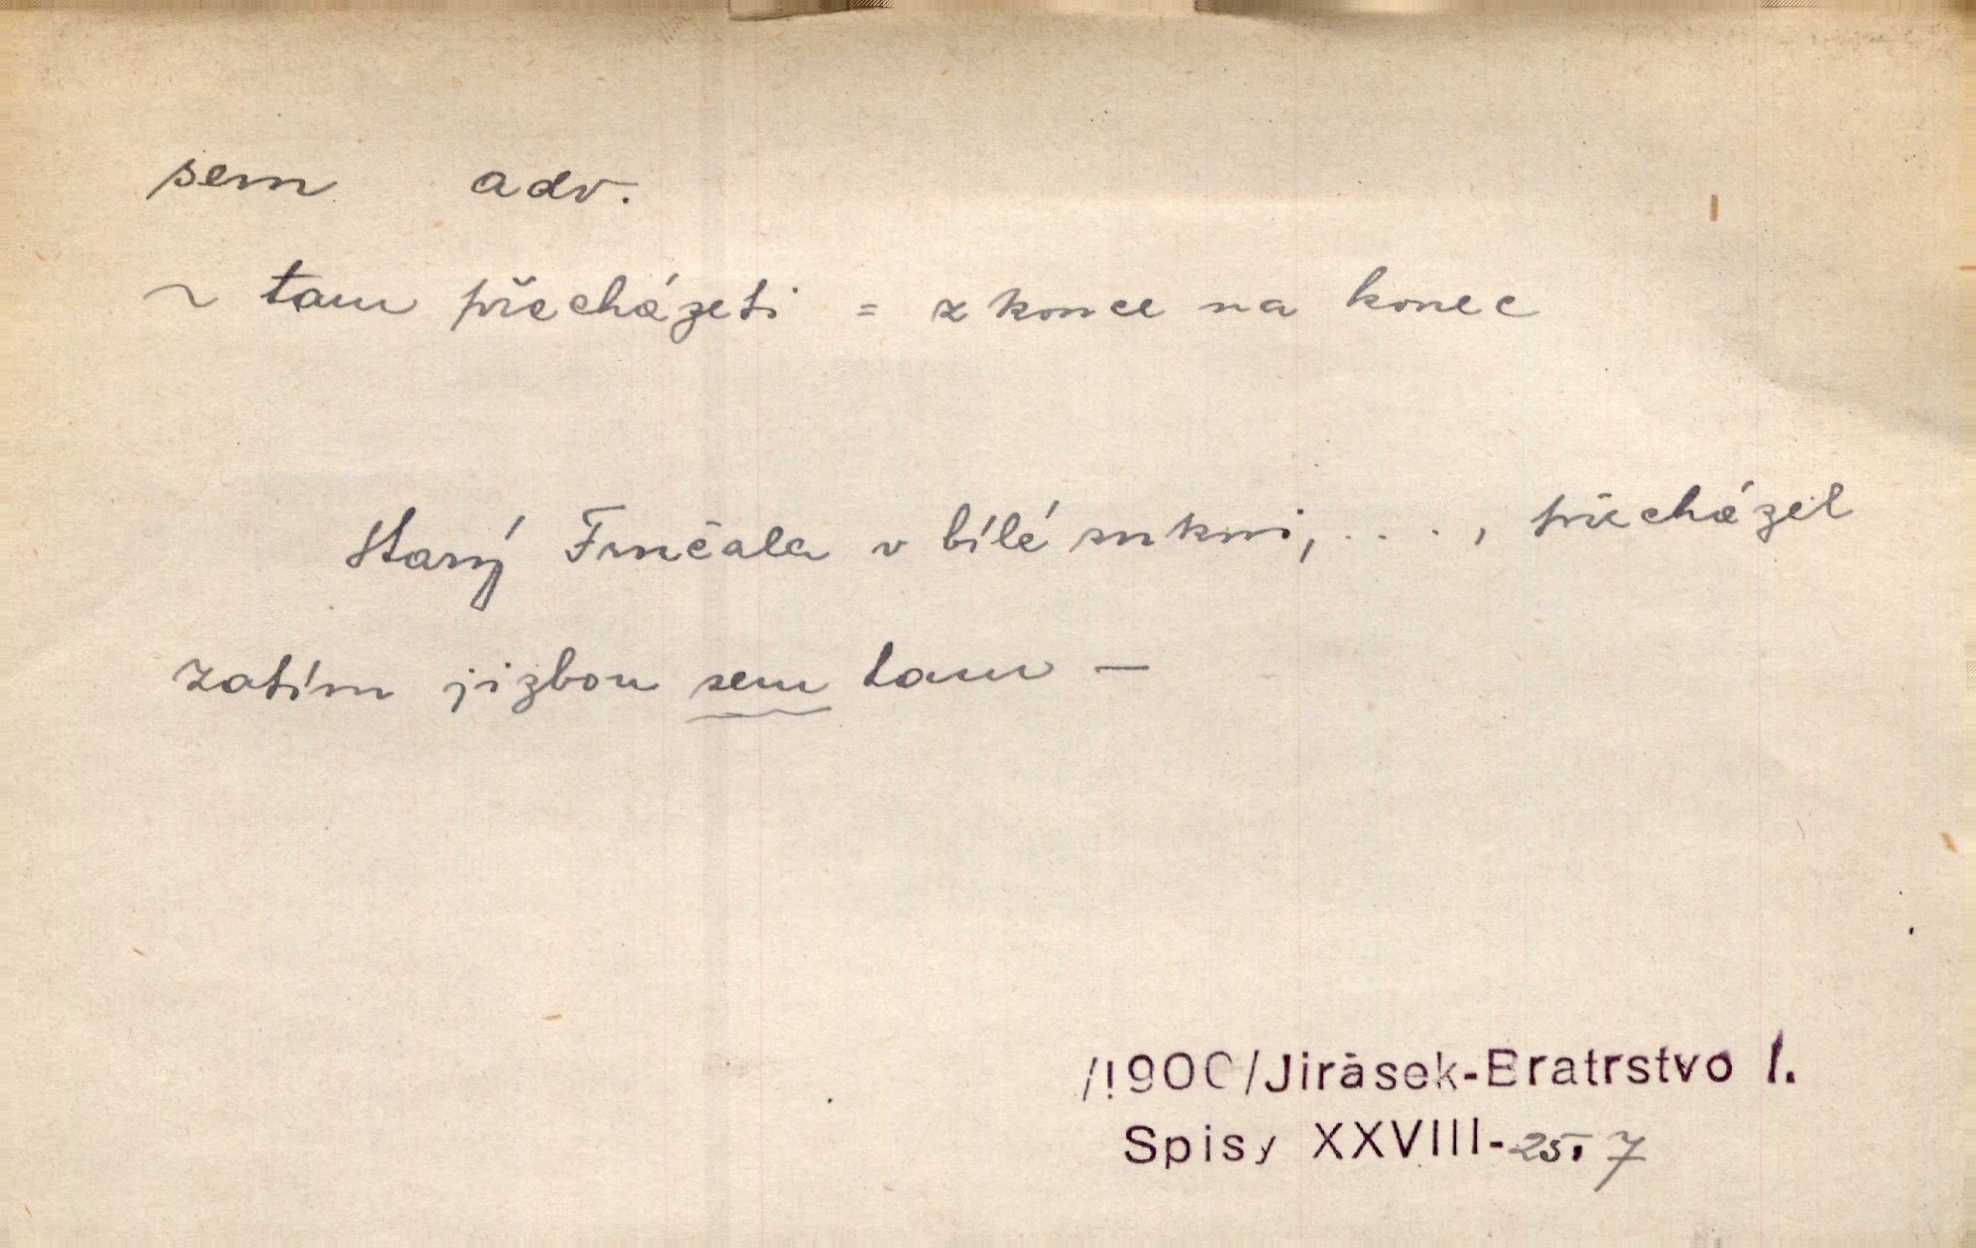 sem adv.
~ tam přecházeti = z konce na konec
Starý Funčala v bílé sukni, . . . , přecházel
zatím jizbou sem tam —
/1900/Jirásek-Bratrstvo I.
Spisy XXVIII-25. 7